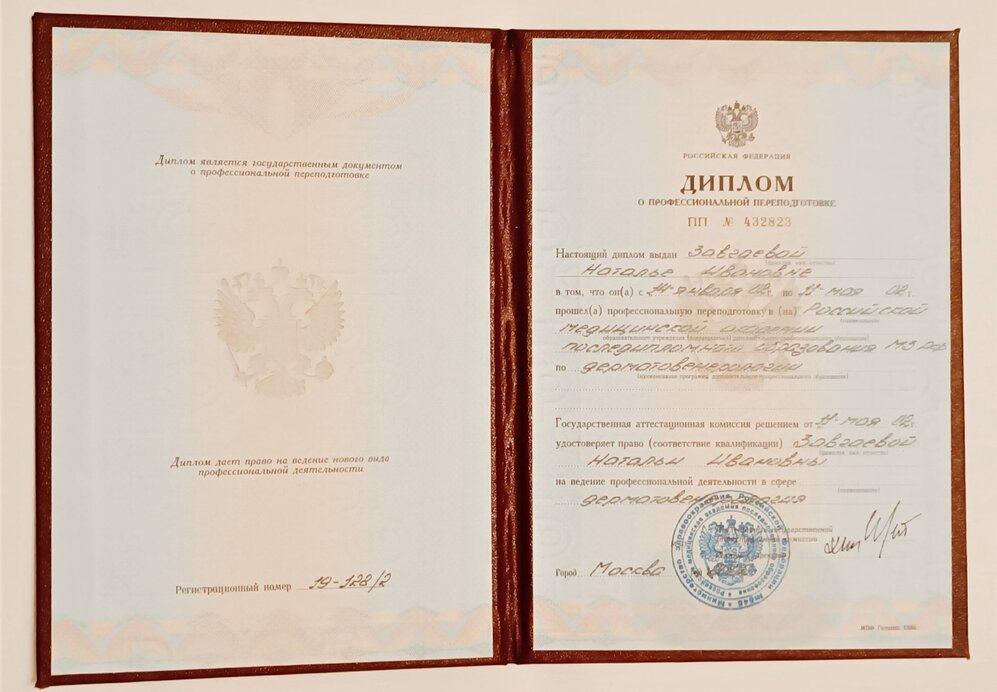 Диплом является государственным документом
о профессиональной переподготовке
Диплом дает право на ведение нового вида
профессиональной деятельности
Регистрационный номер 19-128/2
РОССИЙСКАЯ ФЕДЕРАЦИЯ
ДИПЛОМ
О ПРОФЕССИОНАЛЬНОЙ ПЕРЕПОДГОТОВКЕ
ПП № 432823
Настоящий диплом выдан Завгаевой
(фамилия, имя, отчество)
Наталье Ивановне
в том, что он(а) с 14 января 02 г. по 11 мая 02 г.
прошел(а) профессиональную переподготовку в (на) Российской
(наименование
медицинской академии
образовательного учреждения (подразделения) дополнительного профессионального образования)
последипломного образования МЗ РФ
по дерматовенерологии
(наименование программы дополнительного профессионального образования)
Государственная аттестационная комиссия решением от 11 мая 02 г.
удостоверяет право (соответствие квалификации) Завгаевой
(фамилия, имя, отчество)
Натальи Ивановны
на ведение профессиональной деятельности в сфере
(наименование)
дерматовенерология
Город Москва